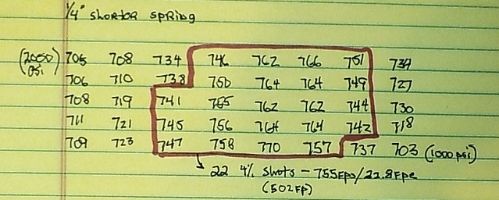 1/4" shorter spring
(2050 psi) 705 708 734 746 762 766 751 734
706 710 738 750 764 764 749 727
708 719 741 755 762 762 744 730
711 721 745 756 764 764 742 718
709 723 747 758 770 757 737 703 (1000 psi)
22 4% shots - 755 fps/22.8 fpe
(502 FP)